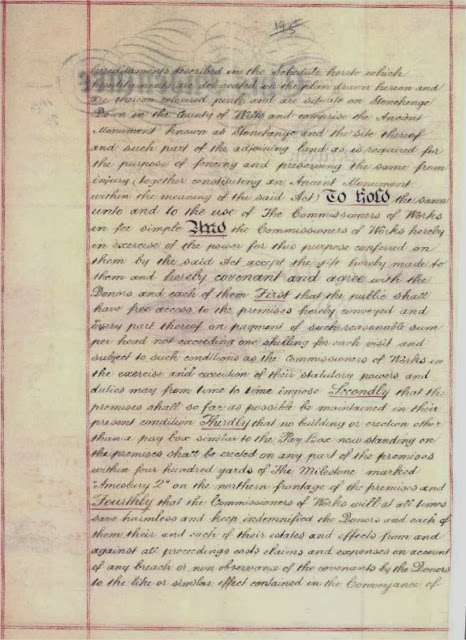 195
hereditaments described in the Schedule hereto which
hereditaments are delineated on the plan drawn hereon and
are thereon coloured pink and are situate on Stonehenge
Down in the County of Wilts and comprise the Ancient
Monument known as Stonehenge and the site thereof
and such part of the adjoining land as is required for
the purpose of fencing and preserving the same from
injury (together constituting an Ancient Monument
within the meaning of the said Act) To Hold the same
unto and to the use of The Commissioners of Works
in fee simple And the Commissioners of Works hereby
in exercise of the power for this purpose conferred on
them by the said Act accept the gift hereby made to
them and hereby covenant and agree with the
Donors and each of them First that the public shall
have free access to the premises hereby conveyed and
every part thereof on payment of such reasonable sum
per head not exceeding one shilling for each visit and
subject to such conditions as the Commissioners of Works in
the exercise and execution of their statutory powers and
duties may from time to time impose Secondly that the
premises shall so far as possible be maintained in their
present condition Thirdly that no building or erection other
than a pay box similar to the Pay Box now standing on
the premises shall be erected on any part of the premises
within four hundred yards of The Milestone marked
"Amesbury 2" on the northern frontage of the premises and
Fourthly that the Commissioners of Works will at all times
save harmless and keep indemnified the Donors and each of
them their and each of their estates and effects from and
against all proceedings costs claims and expenses on account
of any breach or non observance of the covenants by the Donors
to the like or similar effect contained in the Conveyance of